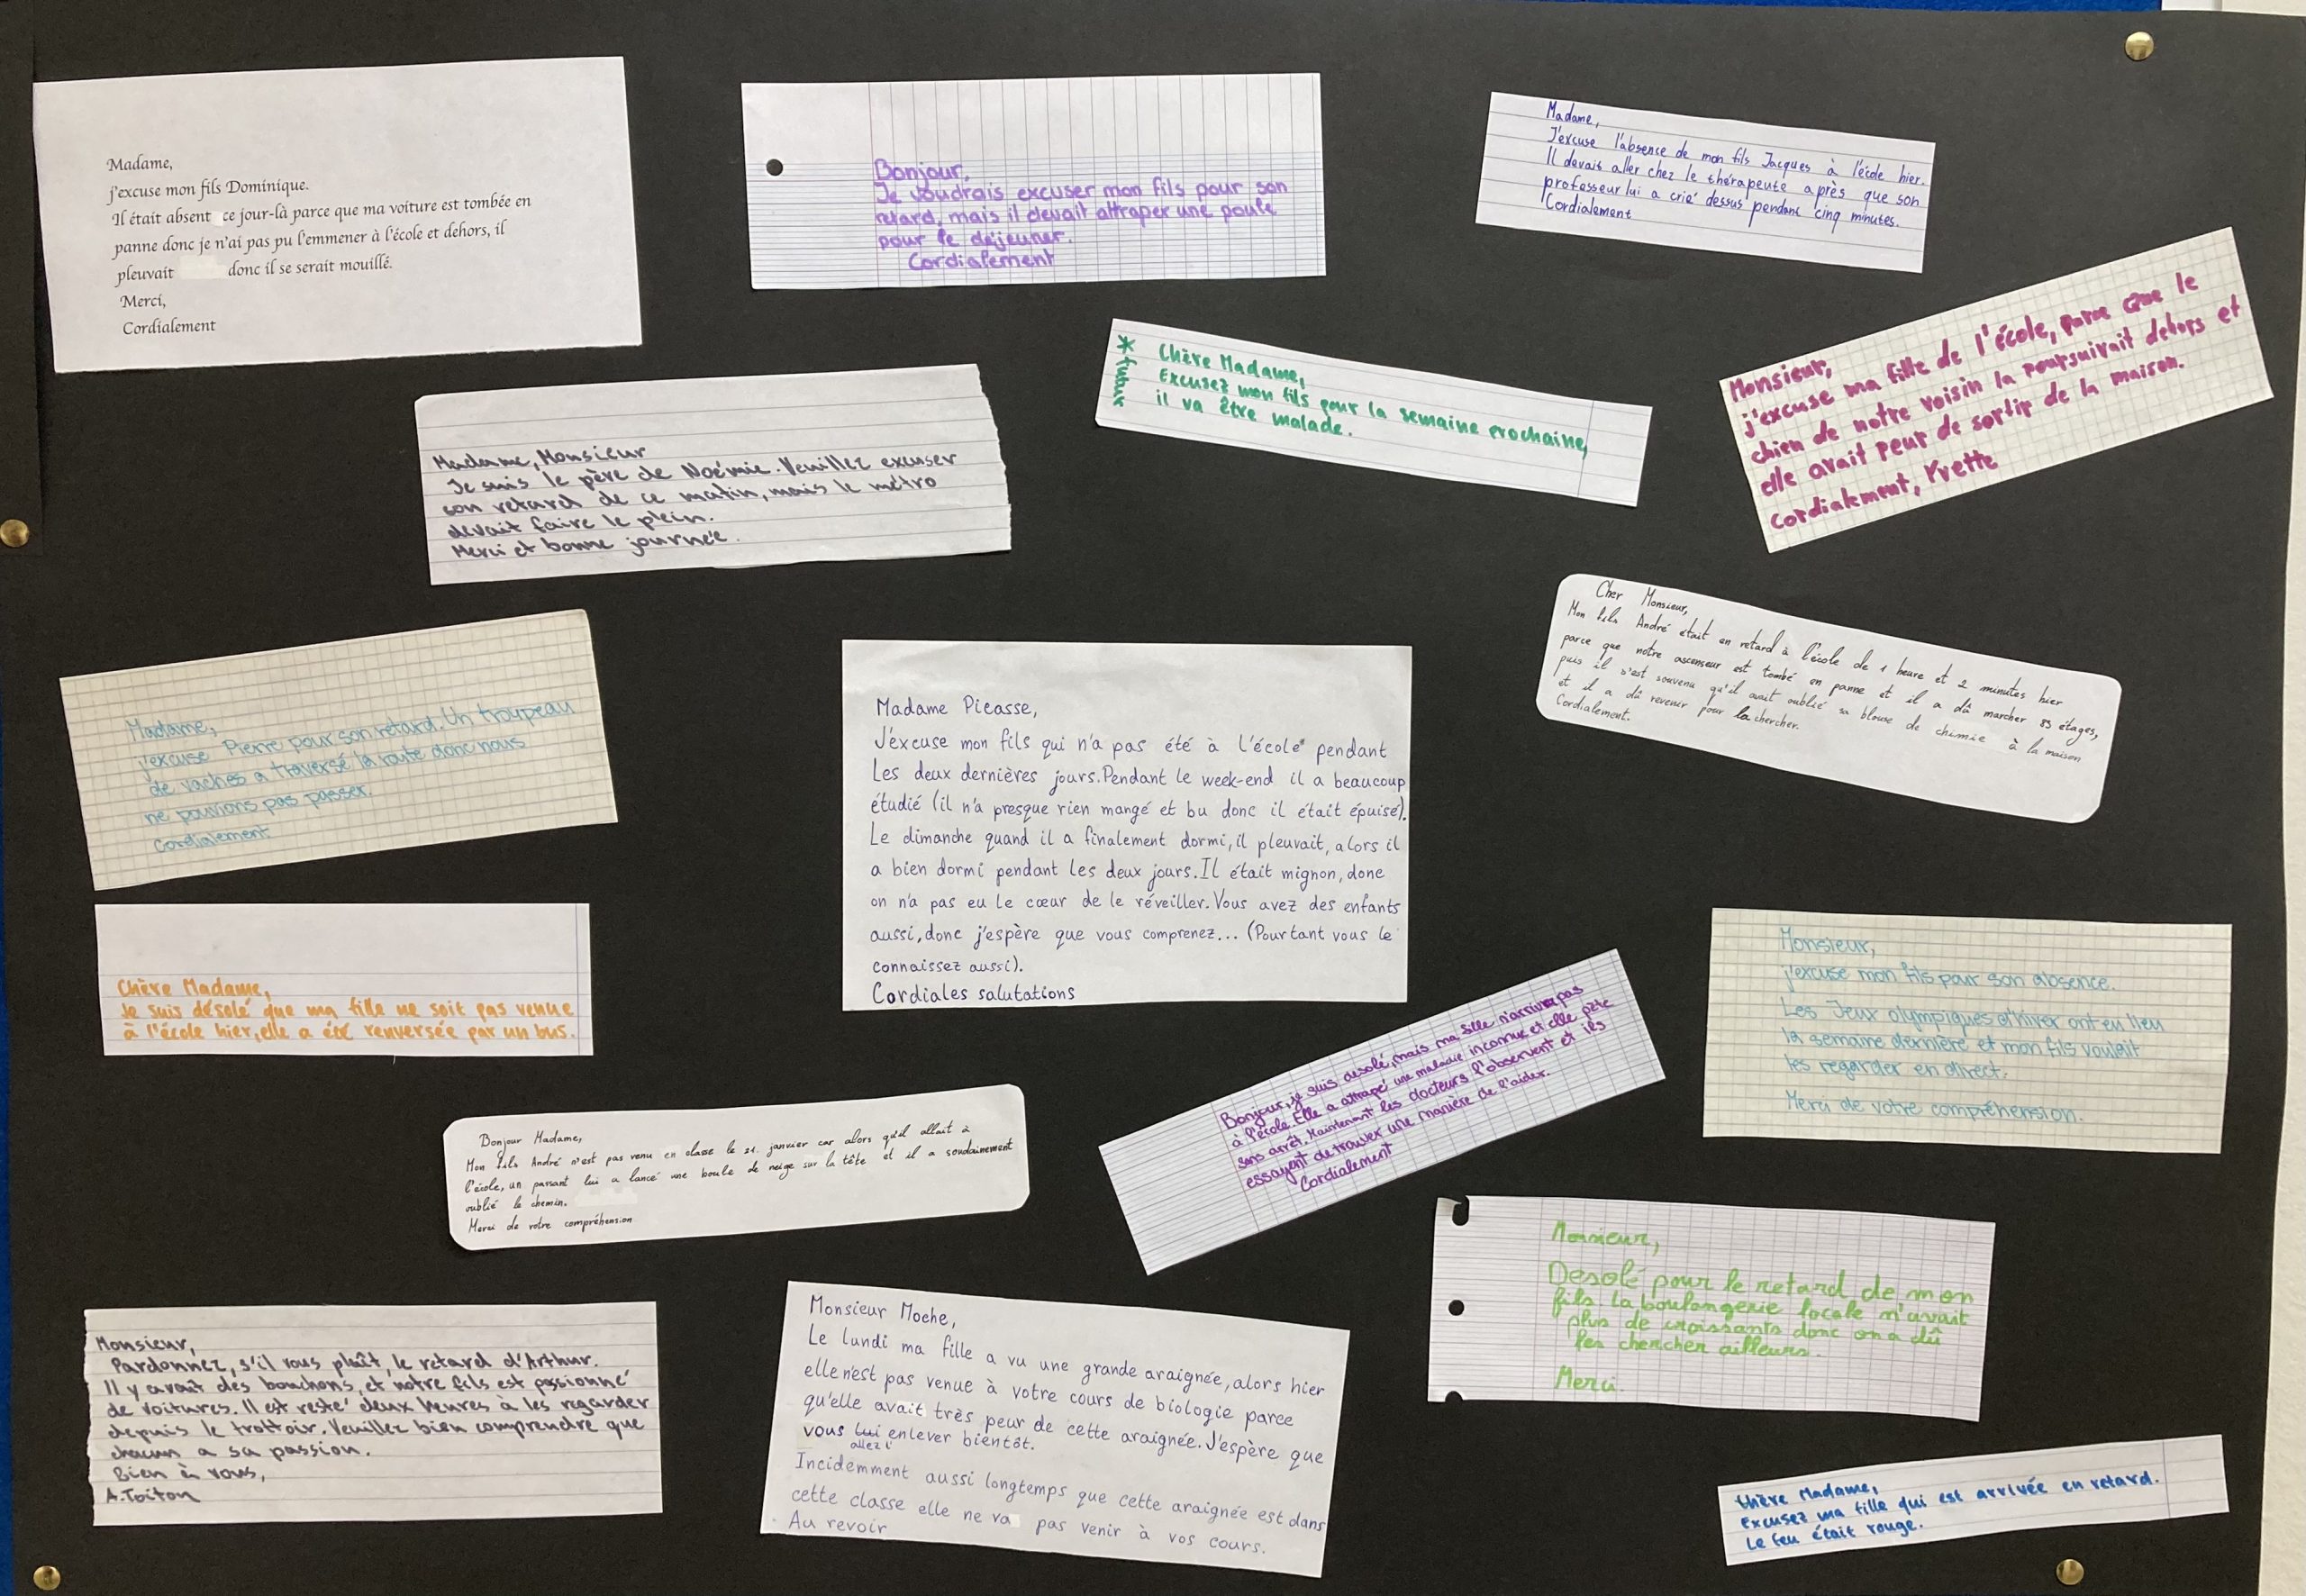 Madame,
j'excuse mon fils Dominique.
Il était absent ce jour-là parce que ma voiture est tombée en
panne donc je n'ai pas pu l'emmener à l'école et dehors, il
pleuvait donc il se serait mouillé.
Merci,
Cordialement
Bonjour,
Je voudrais excuser mon fils pour son
retard, mais il devait attraper une poule
pour le déjeuner.
Cordialement
Madame,
J'excuse l'absence de mon fils Jacques à l'école hier.
Il devais aller chez le thérapeute après que son
professeur lui a crié dessus pendant cinq minutes.
Cordialement
* futur
Chère Madame,
Excusez mon fils pour la semaine prochaine,
il va être malade.
Monsieur,
j'excuse ma fille de l'école, parce que le
chien de notre voisin la poursuivait dehors et
elle avait peur de sortir de la maison.
Cordialement, Yvette
Madame, Monsieur
Je suis le père de Noémie. Veuillez excuser
son retard de ce matin, mais le métro
devait faire le plein.
Merci et bonne journée.
Cher Monsieur,
Mon fils André était en retard à l'école de 1 heure et 2 minutes hier
parce que notre ascenseur est tombé en panne et il a dû marcher 83 étages,
puis il s'est souvenu qu'il avait oublié sa blouse de chimie à la maison
et il a dû revenir pour la chercher.
Cordialement.
Madame,
j'excuse Pierre pour son retard. Un troupeau
de vaches a traversé la route donc nous
ne pouvions pas passer.
Cordialement
Madame Picasse,
J'excuse mon fils qui n'a pas été à l'école pendant
les deux dernières jours. Pendant le week-end il a beaucoup
étudié (il n'a presque rien mangé et bu donc il était épuisé).
Le dimanche quand il a finalement dormi, il pleuvait, alors il
a bien dormi pendant les deux jours. Il était mignon, donc
on n'a pas eu le cœur de le réveiller. Vous avez des enfants
aussi, donc j'espère que vous comprenez... (Pourtant vous le
connaissez aussi).
Cordiales salutations
Chère Madame,
Je suis désolé que ma fille ne soit pas venue
à l'école hier, elle a été renversée par un bus.
Monsieur,
j'excuse mon fils pour son absence.
Les Jeux olympiques d'hiver ont eu lieu
la semaine dernière et mon fils voulait
les regarder en direct.
Merci de votre compréhension.
Bonjour, je suis desolé, mais ma fille n'arrivera pas
à l'école. Elle a attrapé une maladie inconnue et elle pète
sans arrêt. Maintenant les docteurs l'observent et ils
essayent de trouver une manière de l'aider.
Cordialement
Bonjour Madame,
Mon fils André n'est pas venu en classe le 21. janvier car alors qu'il allait à
l'école, un passant lui a lancé une boule de neige sur la tête et il a soudainement
oublié le chemin.
Merci de votre compréhension
Monsieur,
Desolé pour le retard de mon
fils. la boulangerie locale n'avait
plus de croissants donc on a dû
les chercher ailleurs.
Merci.
Monsieur,
Pardonnez, s'il vous plaît, le retard d'Arthur.
Il y avait des bouchons, et notre fils est passionné
de voitures. Il est resté deux heures à les regarder
depuis le trottoir. Veuillez bien comprendre que
chacun a sa passion.
Bien à vous,
A. Toiton
Monsieur Moche,
Le lundi ma fille a vu une grande araignée, alors hier
elle n'est pas venue à votre cours de biologie parce
qu'elle avait très peur de cette araignée. J'espère que
vous lui enlever bientôt.
allez l'
Incidemment aussi longtemps que cette araignée est dans
cette classe elle ne va pas venir à vos cours.
Au revoir
Chère Madame,
Excusez ma fille qui est arrivée en retard.
Le feu était rouge.